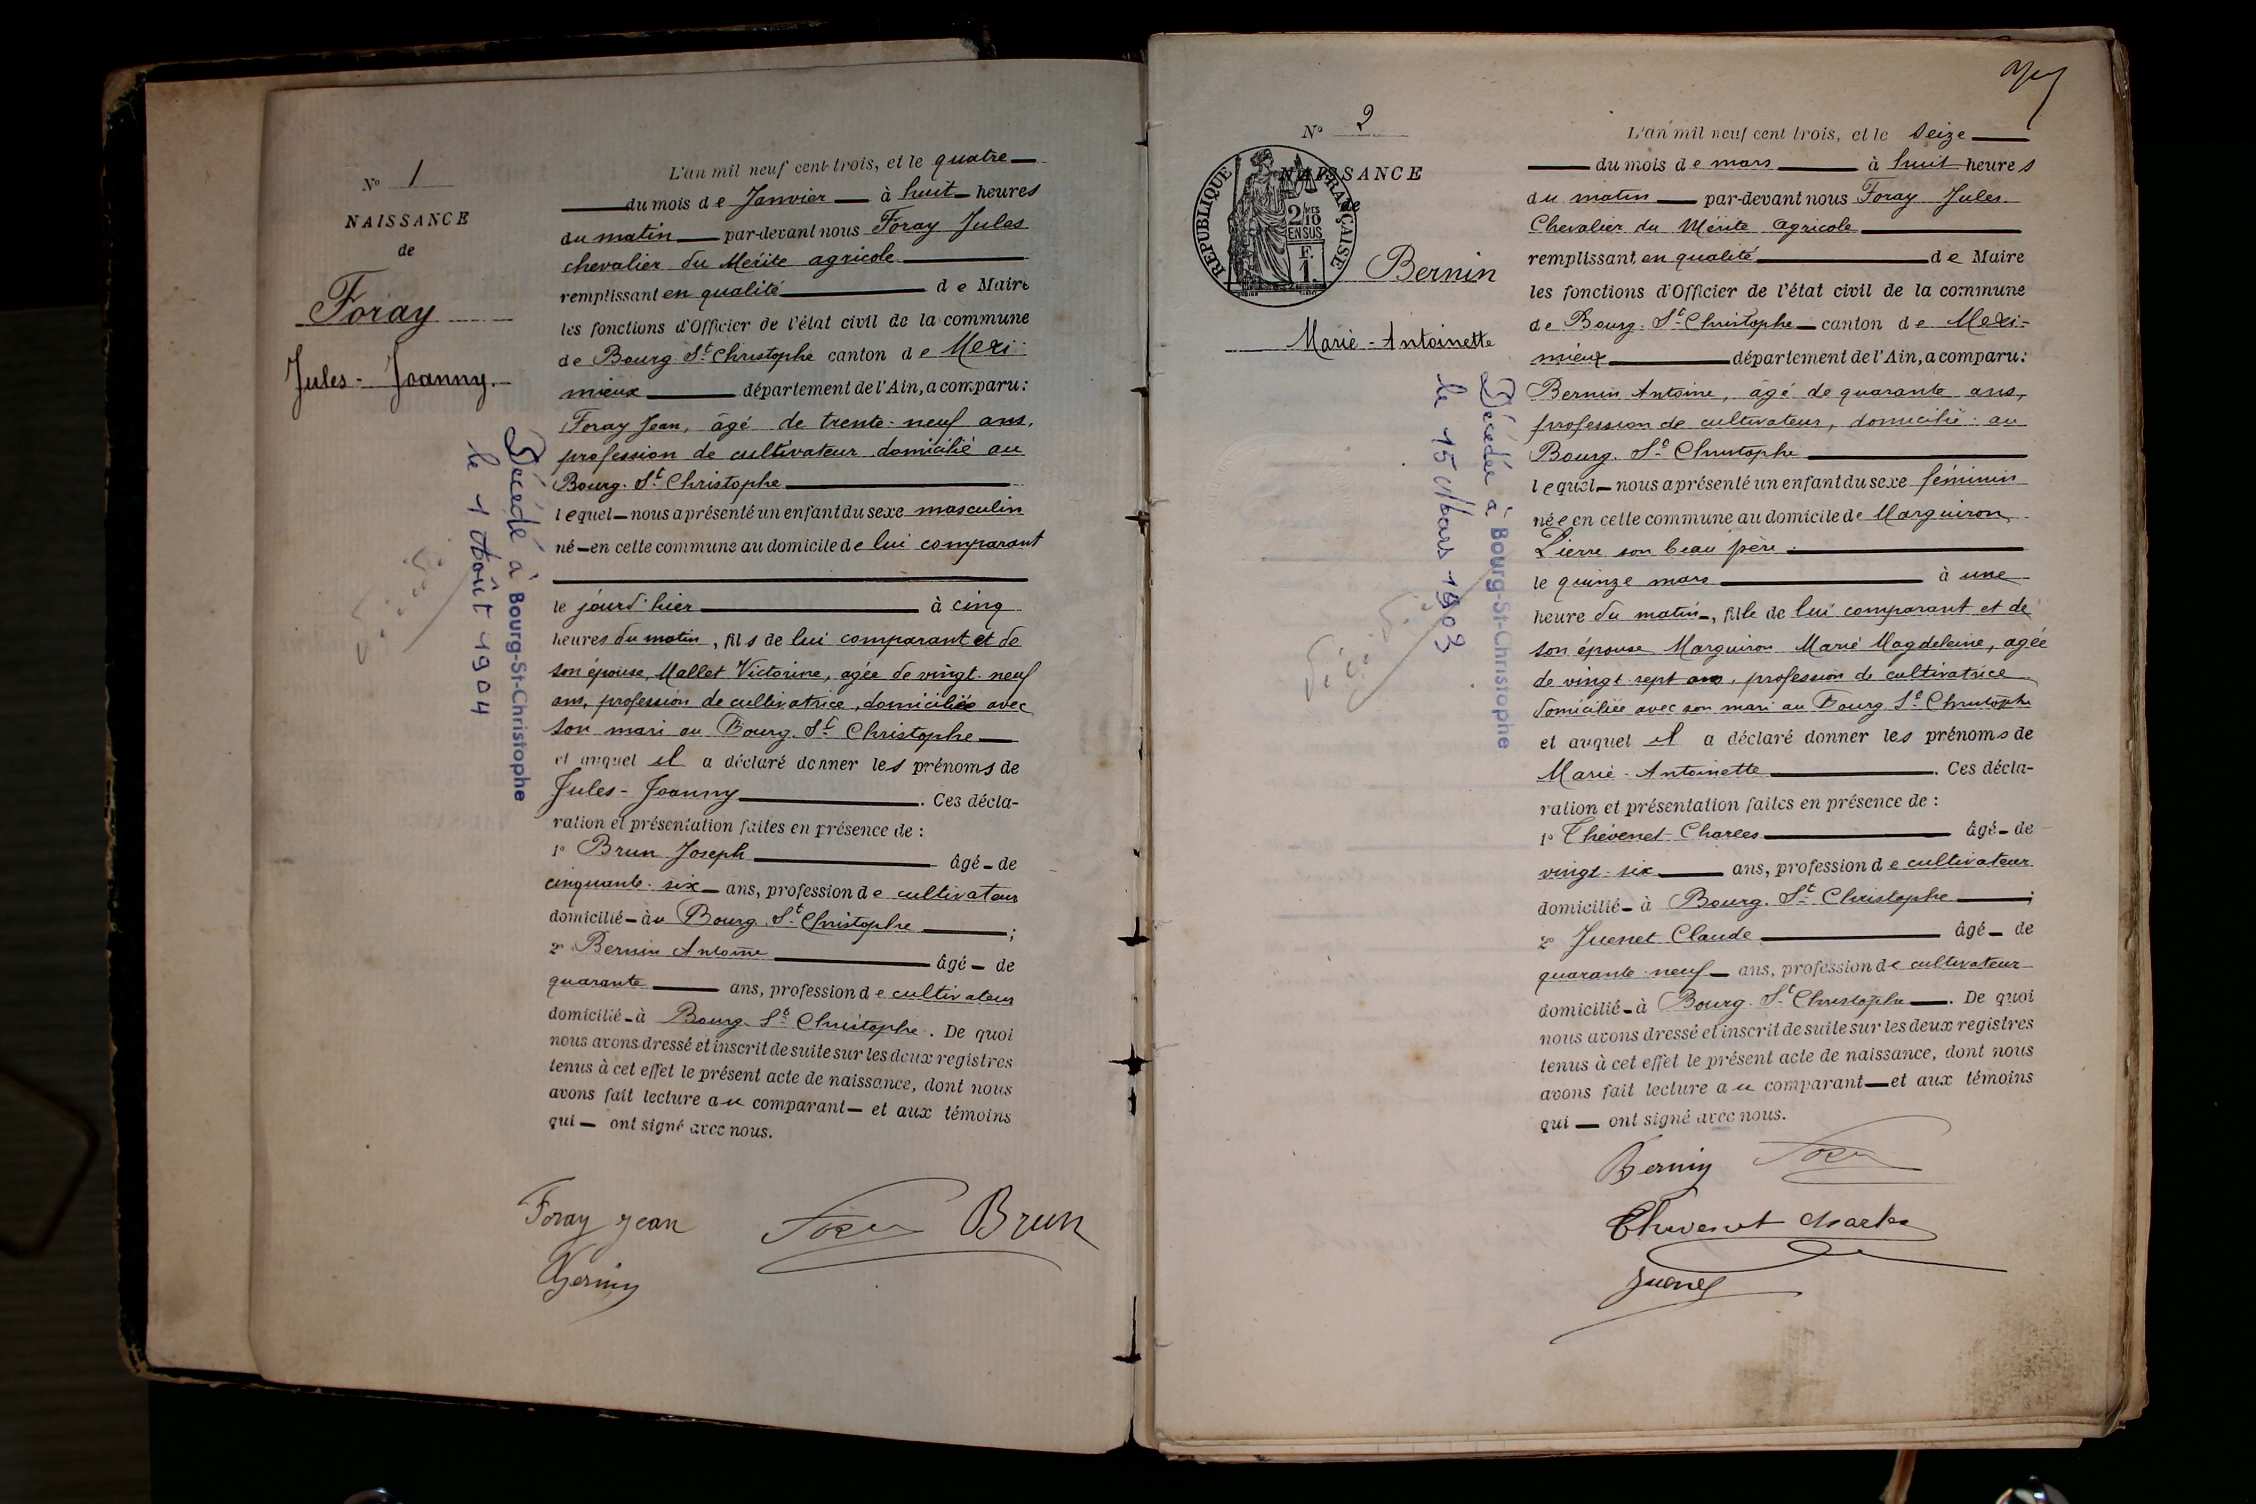 N° 1
NAISSANCE
de
Foray
Jules-Joanny.
Décédé à Bourg-St-Christophe
le 1 Août 1904
Décédé
L'an mil neuf cent trois, et le quatre
du mois de Janvier à huit heures
du matin par-devant nous Foray Jules
chevalier du Mérite agricole
remplissant en qualité de Maire
les fonctions d'Officier de l'état civil de la commune
de Bourg St Christophe canton de Mexi-
mieux département de l'Ain, a comparu:
Foray Jean, âgé de trente-neuf ans,
profession de cultivateur domicilié au
Bourg. St Christophe
lequel nous a présenté un enfant du sexe masculin
né en cette commune au domicile de lui comparant
le jourd'hier à cinq
heures du matin, fils de lui comparant et de
son épouse, Mallet Victorine, agée de vingt-neuf
ans, profession de cultivatrice, domiciliée avec
son mari au Bourg. St Christophe
et auquel il a déclaré donner les prénoms de
Jules-Joanny. Ces décla-
ration et présentation faites en présence de :
1° Brun Joseph âgé de
cinquante-six ans, profession de cultivateur
domicilié au Bourg. St Christophe ;
2° Bernin Antoine âgé de
quarante ans, profession de cultivateur
domicilié à Bourg. St Christophe. De quoi
nous avons dressé et inscrit de suite sur les deux registres
tenus à cet effet le présent acte de naissance, dont nous
avons fait lecture au comparant et aux témoins
qui ont signé avec nous.
Foray Jean Brun
Bernin
N° 2
NAISSANCE
de
RÉPUBLIQUE FRANÇAISE
2/10 EN SUS
F. 1
Bernin
Marie-Antoinette
Décédée à Bourg-St-Christophe
le 15 Mars 1903
Décédé
L'an mil neuf cent trois, et le seize
du mois de mars à huit heures
du matin par-devant nous Foray Jules
Chevalier du Mérite Agricole
remplissant en qualité de Maire
les fonctions d'Officier de l'état civil de la commune
de Bourg. St Christophe canton de Mexi-
mieux département de l'Ain, a comparu:
Bernin Antoine, âgé de quarante ans,
profession de cultivateur, domicilié au
Bourg. St Christophe
lequel nous a présenté un enfant du sexe féminin
née en cette commune au domicile de Marguiron
Pierre son beau père.
le quinze mars à une
heure du matin, fille de lui comparant et de
son épouse Marguiron Marie Magdeleine, agée
de vingt sept ans, profession de cultivatrice
domiciliée avec son mari au Bourg St Christophe
et auquel il a déclaré donner les prénoms de
Marie-Antoinette. Ces décla-
ration et présentation faites en présence de :
1° Thévenet Charles âgé de
vingt-six ans, profession de cultivateur
domicilié à Bourg. St Christophe ;
2° Juenet Claude âgé de
quarante-neuf ans, profession de cultivateur
domicilié à Bourg. St Christophe. De quoi
nous avons dressé et inscrit de suite sur les deux registres
tenus à cet effet le présent acte de naissance, dont nous
avons fait lecture au comparant et aux témoins
qui ont signé avec nous.
Bernin
Thevenet Charles
Juenet